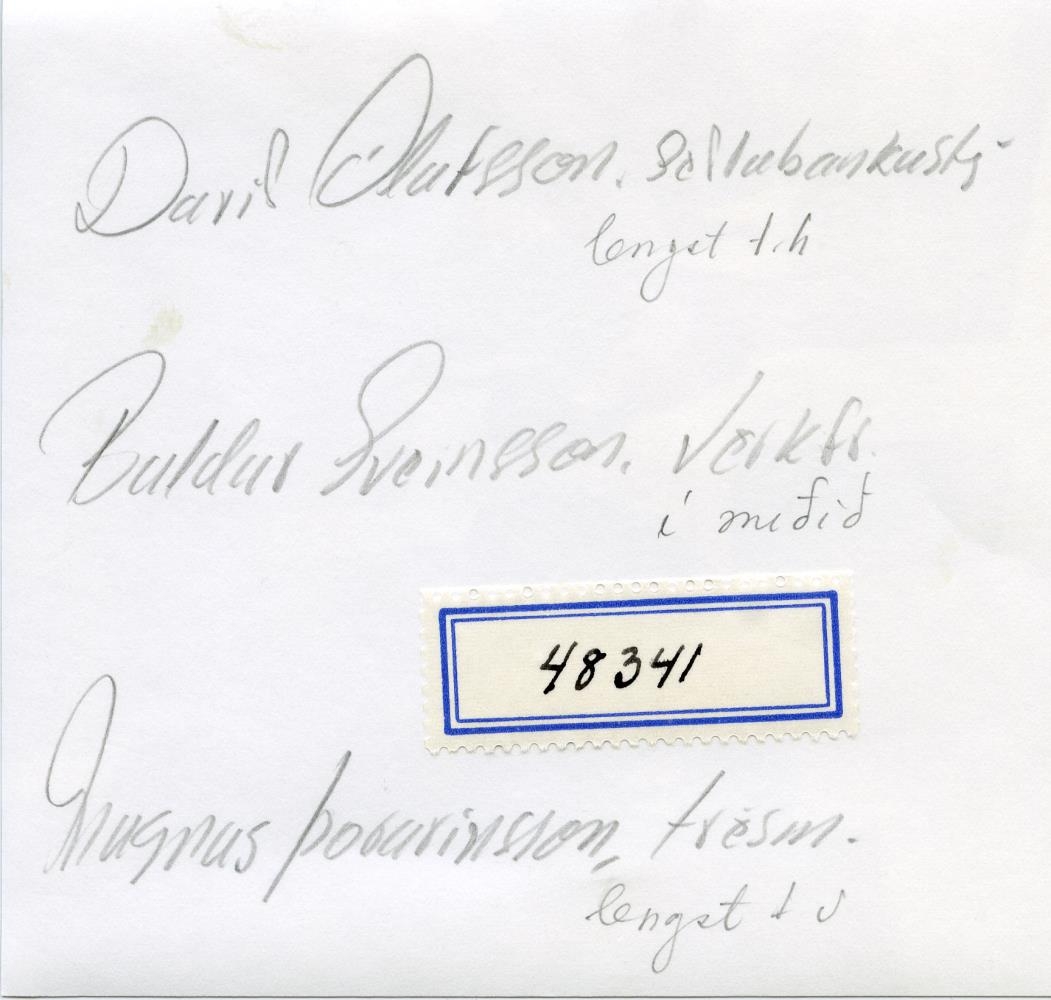 Davíð Ólafsson. Seðlabankastj.
lengst t.h
Baldur Sveinsson. Verkfr.
í miðið
48341
Magnus Þórarinsson, trésm.
lengst t v